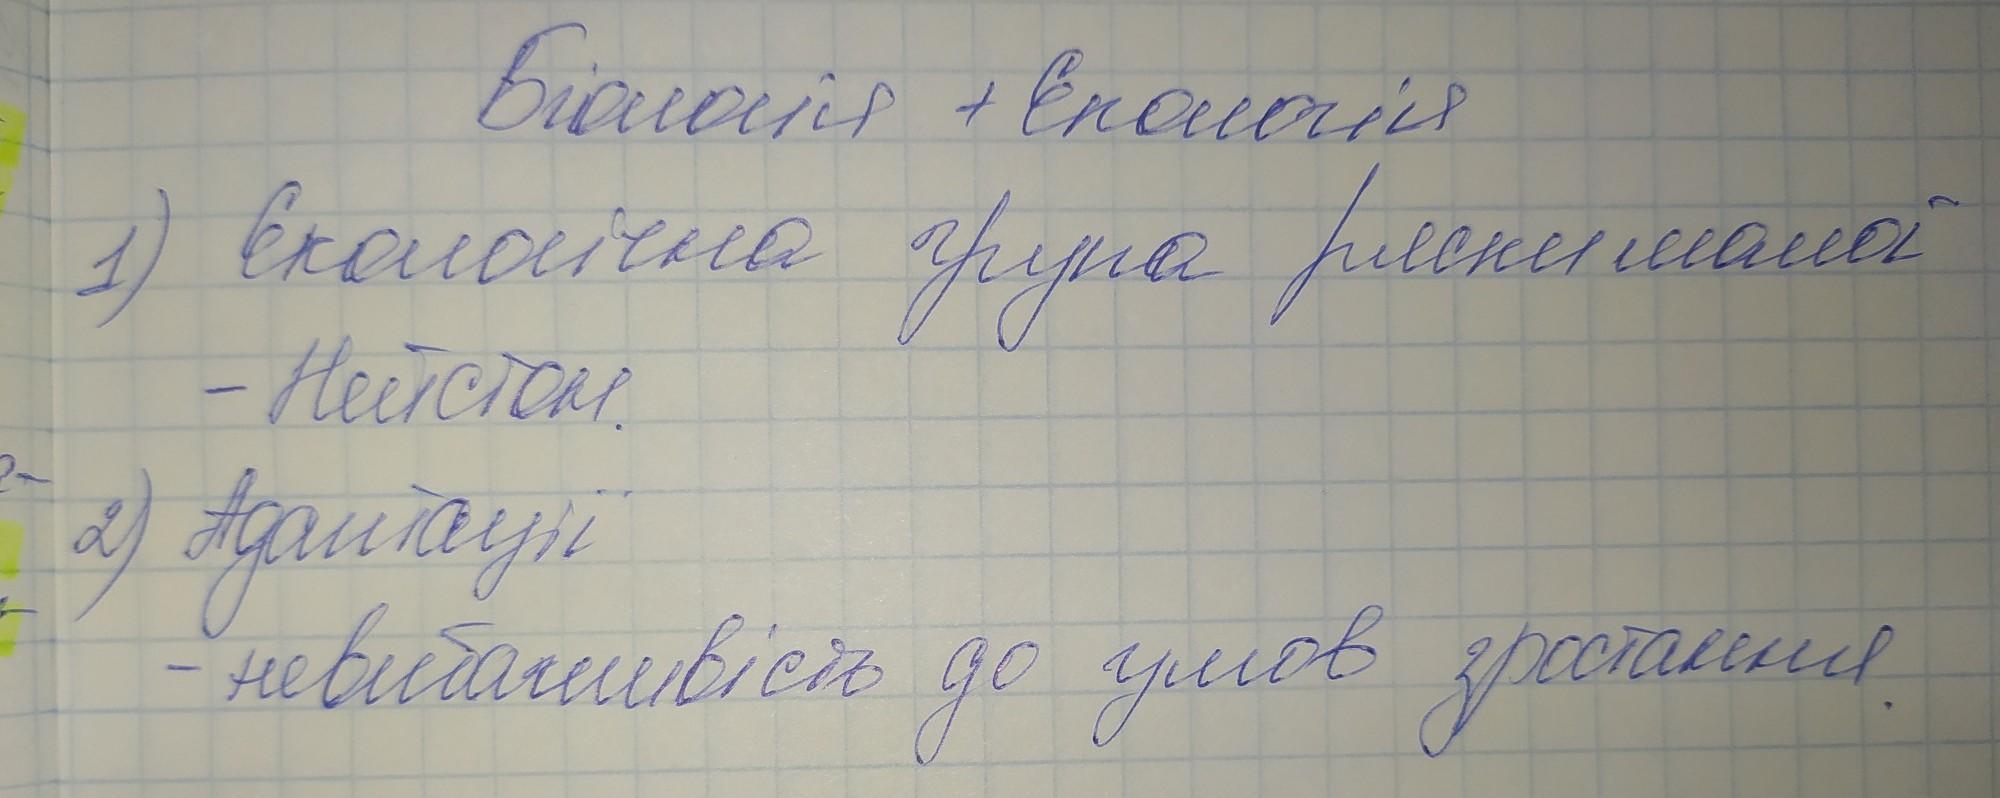 Біологія + Екологія
1) Екологічна група ряски малої
- Нейстон.
2) Адаптації
- невибагливість до умов зростання.